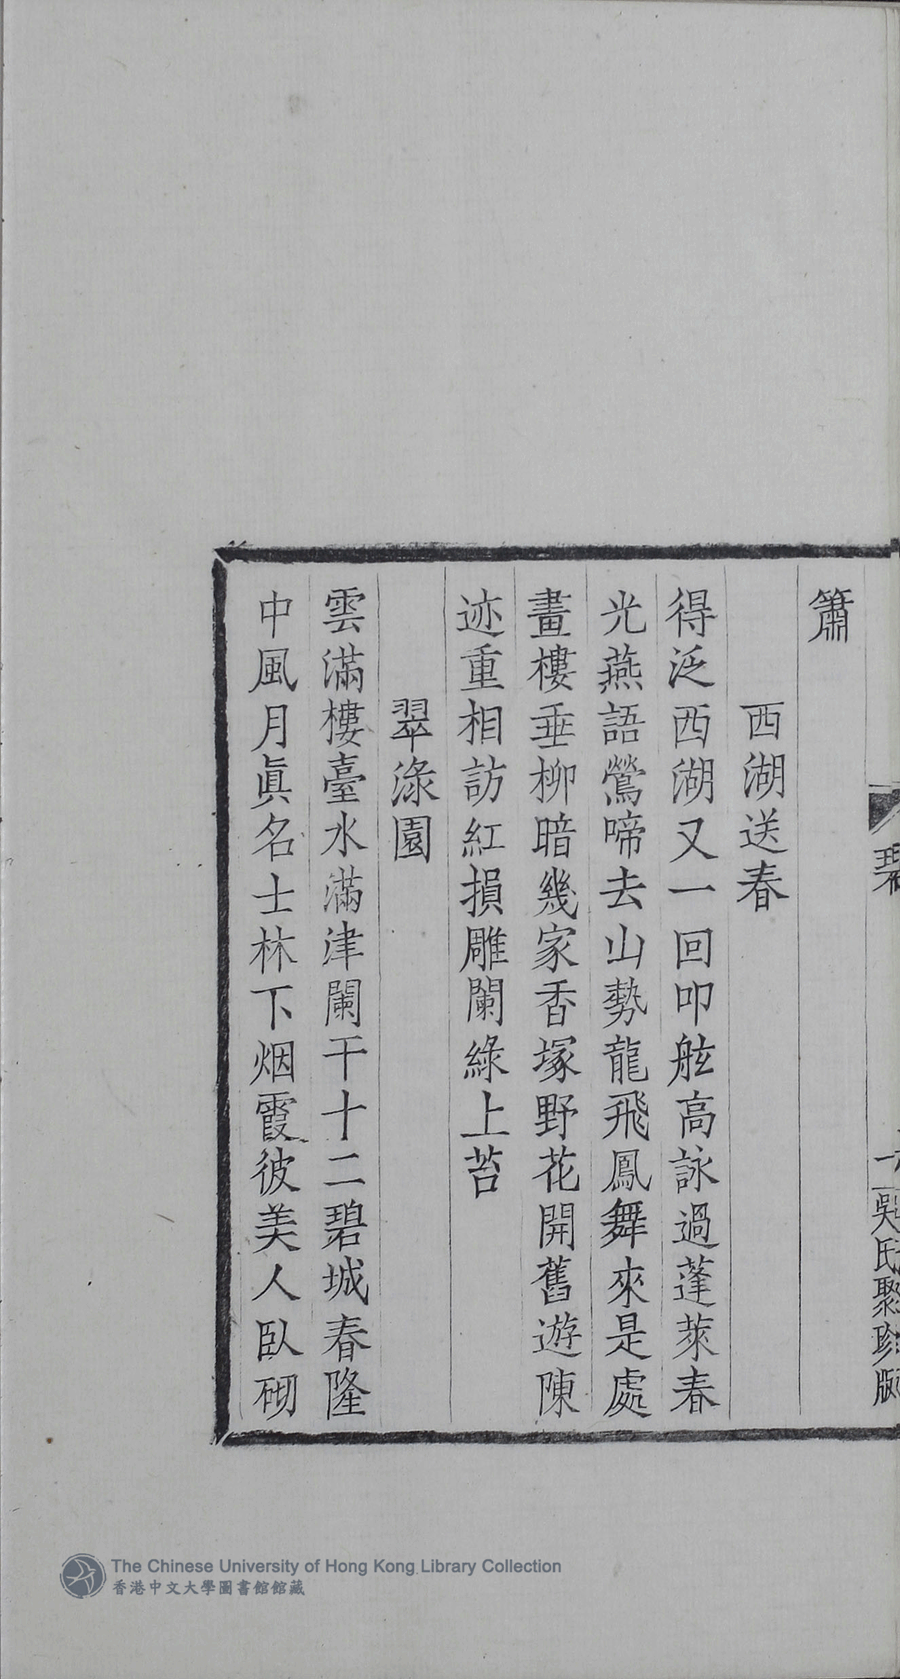 簫
西湖送春
得泛西湖又一回叩舷高詠過蓬萊春
光燕語鶯啼去山勢龍飛鳳舞來是處
畫樓垂柳暗幾家香塚野花開舊遊陳
迹重相訪紅損雕闌綠上苔
翠淥園
雲滿樓臺水滿津闌干十二碧城春隆
中風月眞名士林下烟霞彼美人臥砌
吳氏聚珍版
The Chinese University of Hong Kong Library Collection
香港中文大學圖書館館藏